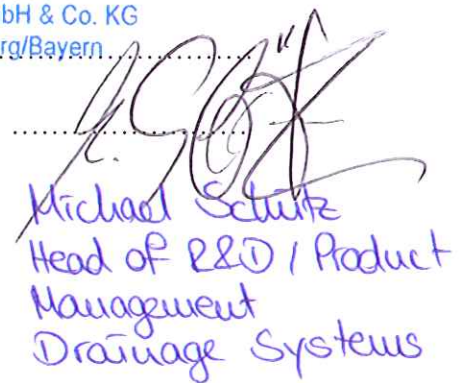 bH & Co. KG
rg/Bayern
Michael Schütz
Head of R&D / Product
Management
Drainage Systems